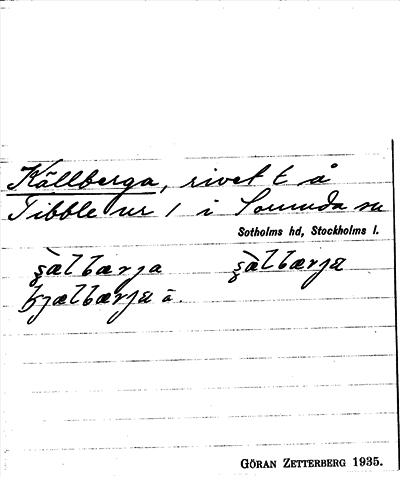 Källberga, rivet t å
Tibble nr 1 i Sorunda sn
Sotholms hd, Stockholms l.
ʂælbærja ʂælbærja
kjælbærja ä.
GÖRAN ZETTERBERG 1935.